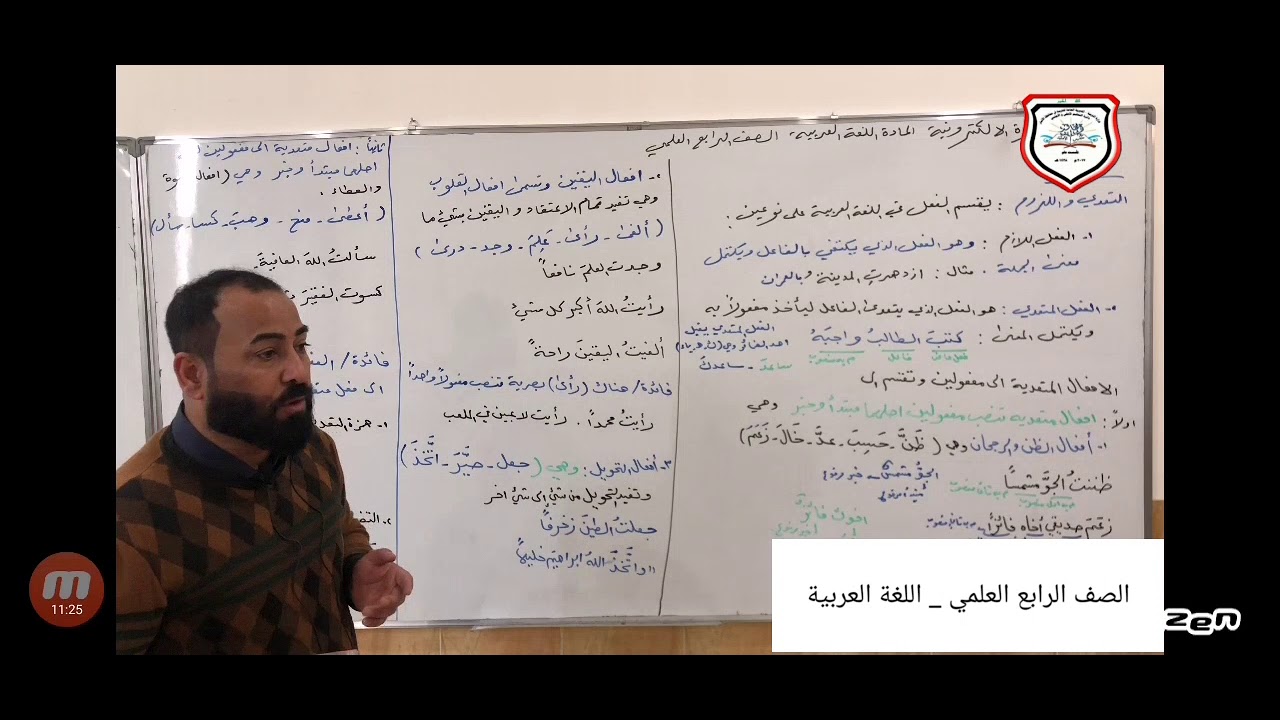 الالكترونية المادة اللغة العربية. الصف الرابع العلمي
التعدي واللزوم : يقسم الفعل في اللغة العربية على نوعين :
١. الفعل اللازم : وهو الفعل الذي يكتفي بالفاعل ويكتمل
معنى الجملة . مثال : ازدهرت المدينة بالعمران
الفعل المتعدي : هو الفعل الذي يتعدى الفاعل ليأخذ مفعولاً به
ويكتمل المعنى : كتبَ الطالبُ واجبَهُ
الفعل المتعدي يقبل
احد الضمائر وهي
فعل ماض فاعل
ساعدَ - ساعدكَ
الافعال المتعدية الى مفعولين وتقسم الى
اولاً : افعال متعدية تنصب مفعولين اصلهما مبتدأ وخبر وهي
١. أفعال الظن والرجحان وهي ( ظَنَّ - حَسِبَ - عدَّ - خَالَ - زَعَمَ )
ظننتُ الجوَّ مشمساً
الجوُّ مشمسٌ
زعمَ صديقي أخاه فائزاً
أخوك فائزٌ
٢. افعال اليقين وتسمى افعال القلوب
وهي تفيد تمام الاعتقاد واليقين بشيء ما
( ألفى - رأى - عَلِمَ - وجد - درى )
وجدت العلمَ نافعاً
رأيتُ اللهَ أكبر كل شيءٍ
ألفيتُ اليقينَ راحةً
فائدة / هناك ( رأى ) بصرية تنصب مفعولاً واحداً
رأيتُ محمداً . رأيت لاعبين في الملعب
٣. أفعال التحويل : وهي ( جعل - صيَّرَ - اتَّخَذَ )
وتفيد التحويل من شيء الى شيء اخر
جعلتُ الطينَ زخرفاً
"واتَّخَذَ اللهُ ابراهيمَ خليلاً
ثانياً : افعال متعدية الى مفعولين
اصلهما مبتدأ وخبر وهي ( افعال
والعطاء .
( أعطى - منح - وهبَ - كسا - سأل )
سألتُ اللهَ العافيةَ .
كسوت الفقيرَ
فائدة /
الى فعل
١- همزة
٢.
الصف الرابع العلمي _ اللغة العربية
11:25
zen